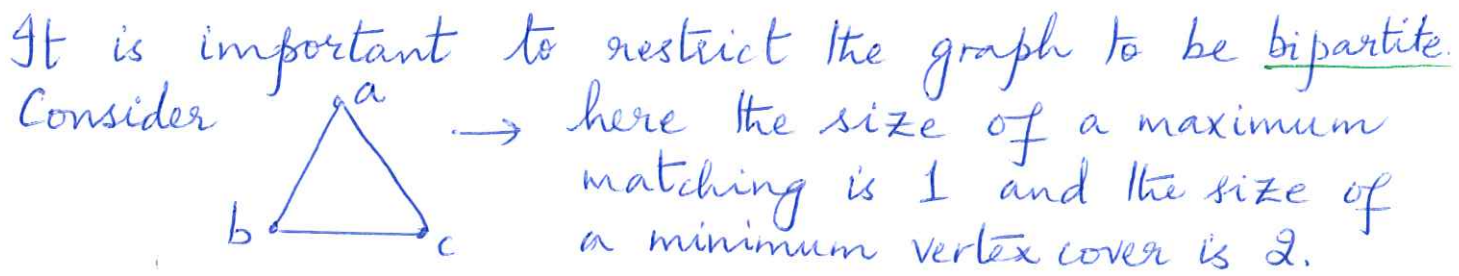 It is important to restrict the graph to be bipartite.
Consider a → here the size of a maximum
matching is 1 and the size of
b c a minimum vertex cover is 2.